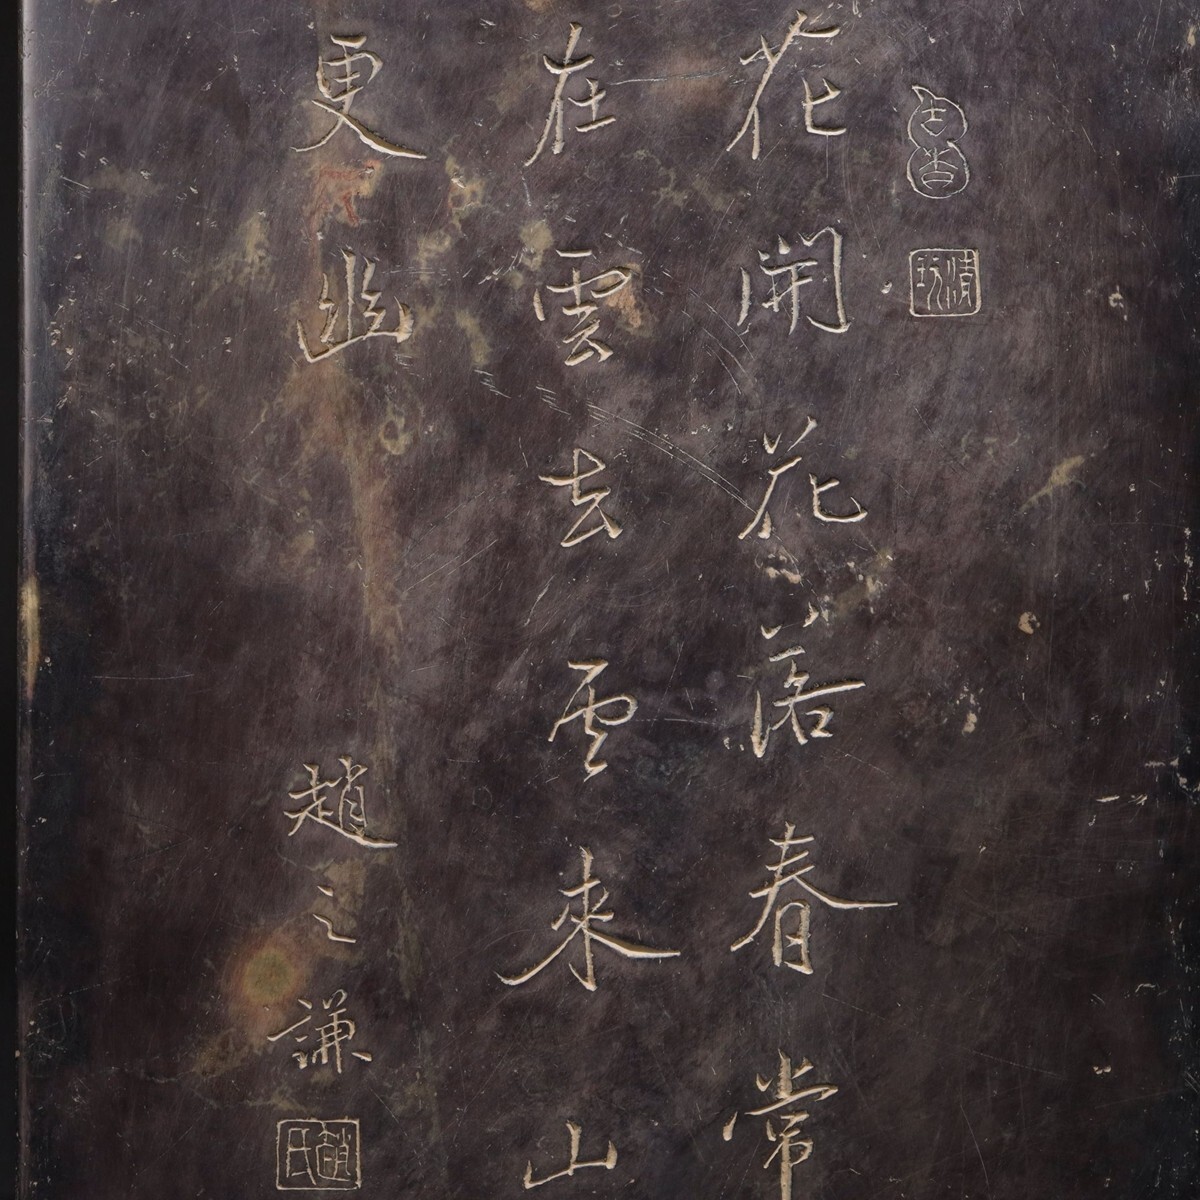 清玩
花開花落春常
在雲去雲來山
更幽
趙之謙
趙氏